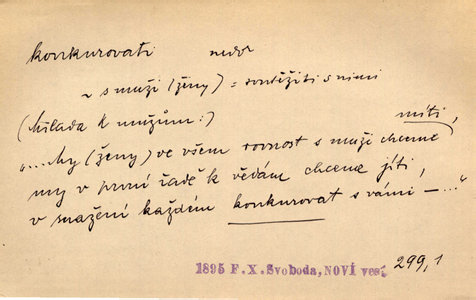 konkurovati nedok
~ s muži (ženy) = soutěžiti s nimi
(Milada k mužům:) míti,
„...My (ženy) ve všem rovnost s muži chceme
my v první řadě k vědám chceme jíti,
v snažení každém konkurovat s vámi — ..."
1895 F.X.Svoboda, NOVÍ vesi 299,1